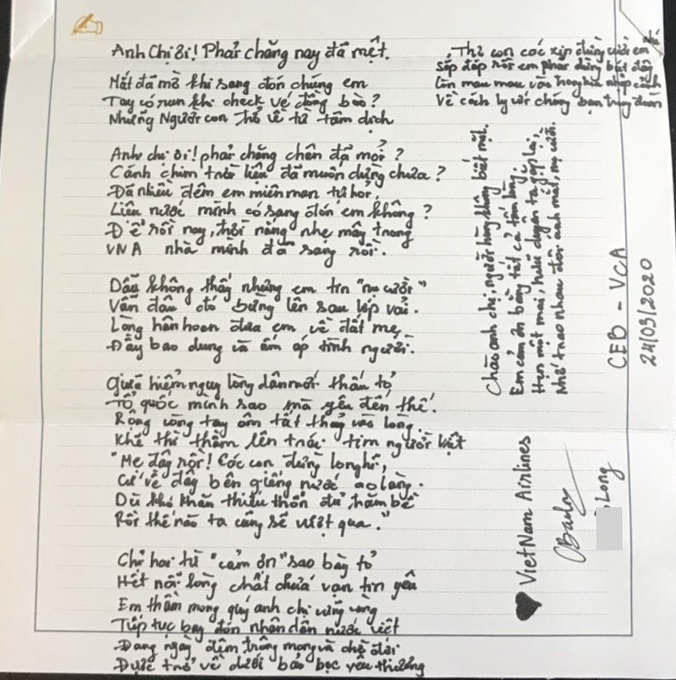 Anh Chị ơi! Phải chăng nay đã mệt.
Mắt đã mờ khi sang đón chúng em
Tay có run khi check vé đồng bào?
Những Người con trở về từ tâm dịch
Anh chị ơi! phải chăng chân đã mỏi?
Cánh chim trời liệu đã muốn dừng chưa?
Đã nhiều đêm em miên man tự hỏi,
Liệu nước mình có sang đón em không?
Để rồi nay, trời nắng nhẹ mây trong
VNA nhà mình đã sang rồi.
Dẫu không thấy nhưng em tin "nụ cười"
Vẫn đâu đó bừng lên sau lớp vải.
Lòng hân hoan đưa em về đất mẹ,
Đầy bao dung và ấm áp tình người.
Giữa hiểm nguy lòng dân mới thấu tỏ
Tổ quốc mình sao mà yêu đến thế!
Rộng vòng tay ôm tất thảy vào lòng.
Khẽ thì thầm lên trái tim người Việt
"Mẹ đây rồi! Các con đừng lo nghĩ,
Cứ về đây bên giếng nước ao làng.
Dù khó khăn thiếu thốn đủ trăm bề
Rồi thế nào ta cũng sẽ vượt qua."
Chỉ hai từ "cảm ơn" sao bày tỏ
Hết nỗi lòng chất chứa vạn tin yêu
Em thầm mong quý anh chị vững vàng
Tiếp tục bay đón nhân dân nước Việt
Đang ngày đêm trông mong và chờ đợi
Được trở về dưới bảo bọc yêu thương
Thì con các xin đừng cười em nhé
Sắp đáp rồi em phải dừng bút đây
Còn mau mau vào trong kia nhập cảnh
Về cách ly với chúng bạn trung đoàn
Chào anh chị, người hùng không biết mặt.
Em cảm ơn bằng tất cả tấm lòng.
Hẹn một mai, hữu duyên ta gặp lại,
Nhớ trao nhau đôi ánh mắt, nụ cười.
CEB - VCA
24/09/2020
VietNam Airlines
Long